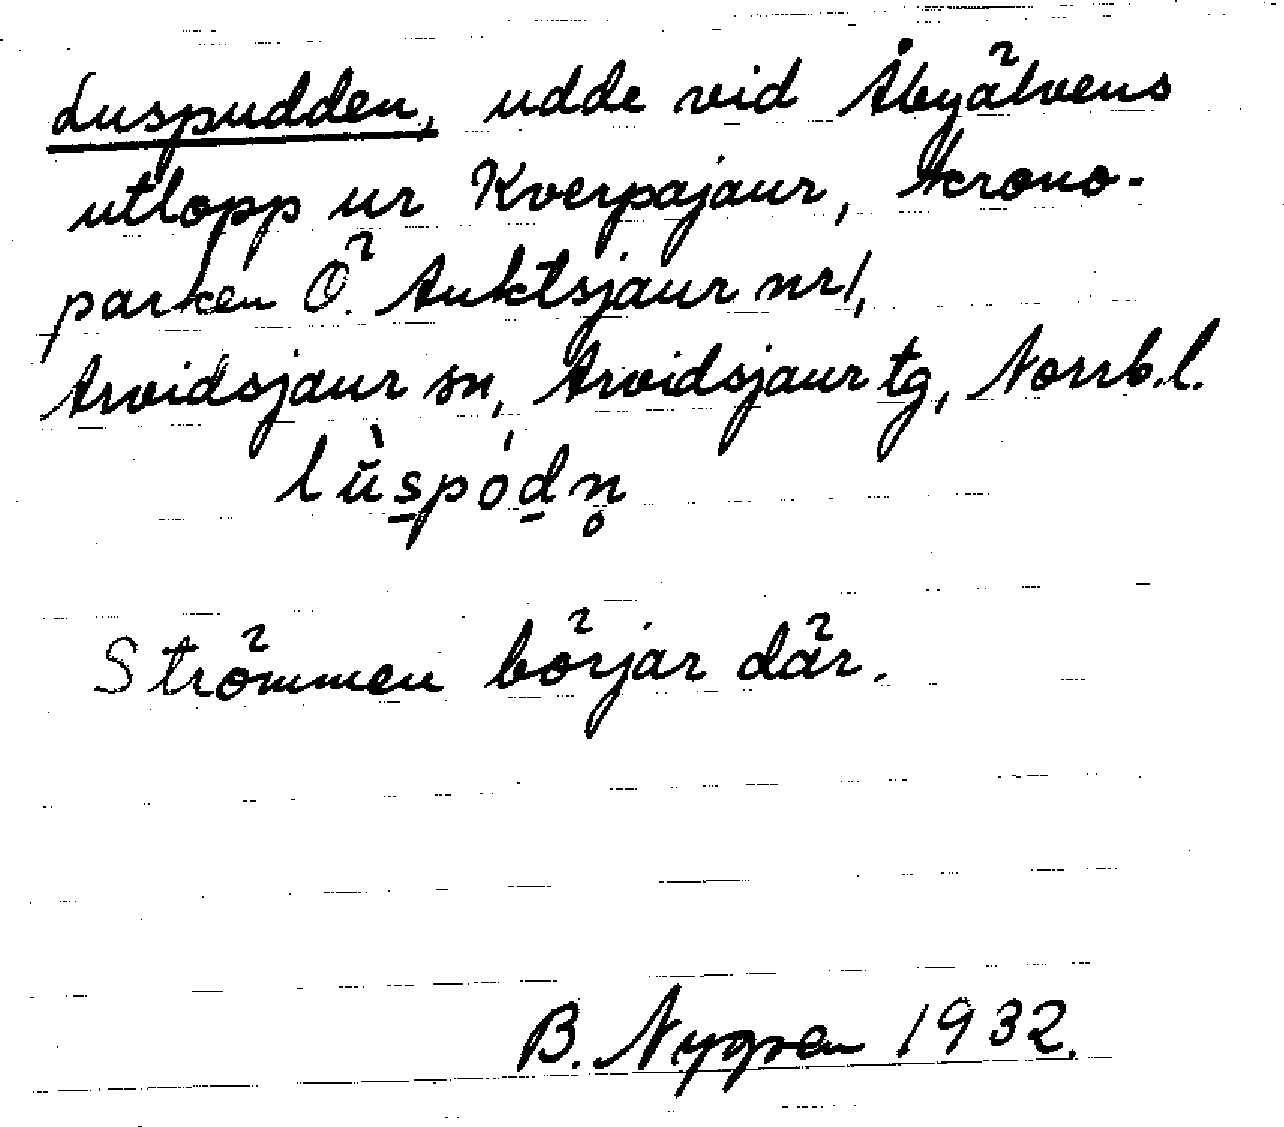 Luspudden, udde vid Åbyälvens
utlopp ur Kverpajaur, krono-
parken Ö. Auktsjaur nr 1,
Arvidsjaur sn, Arvidsjaur tg, Norrb.l.
lŭ̀spódn̥
Strömmen börjar där.
B. Nygren 1932.